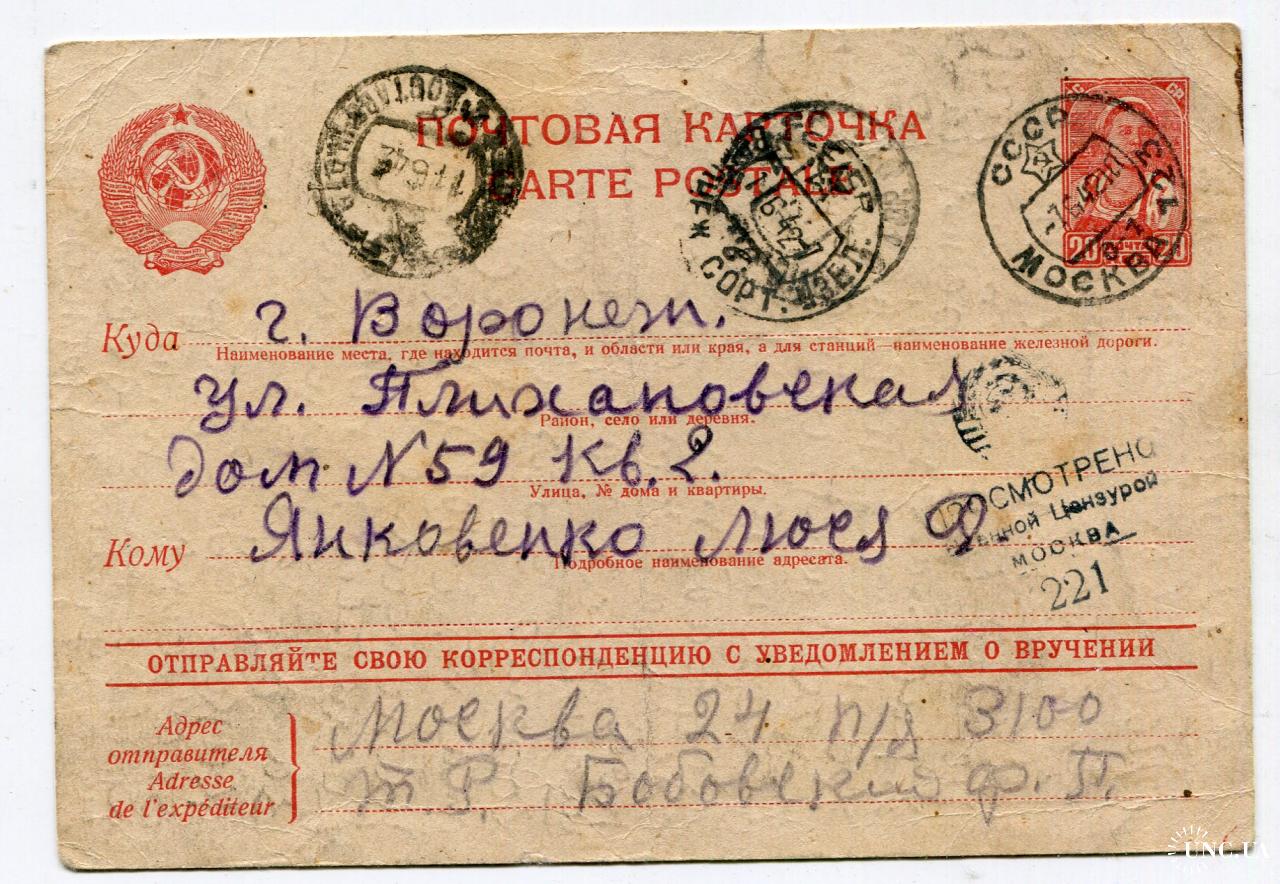 ПОЧТОВАЯ КАРТОЧКА
CARTE POSTALE
11 6 42
СОРТ.
СССР
МОСКВА
20 ПОЧТА 20
Куда г. Воронеж.
Наименование места, где находится почта, и области или края, а для станций—наименование железной дороги.
ул. Плихановская
Район, село или деревня.
дом N 59 кв. 2.
Улица, № дома и квартиры.
Кому Янковенко Люся Ф
Подробное наименование адресата.
ПРОСМОТРЕНО
Военной Цензурой
МОСКВА
221
ОТПРАВЛЯЙТЕ СВОЮ КОРРЕСПОНДЕНЦИЮ С УВЕДОМЛЕНИЕМ О ВРУЧЕНИИ
Адрес
отправителя
Adresse
de l'expéditeur
Москва 24 п/я 3100
т Р. Бобовский Ф. П.
UNC.UA